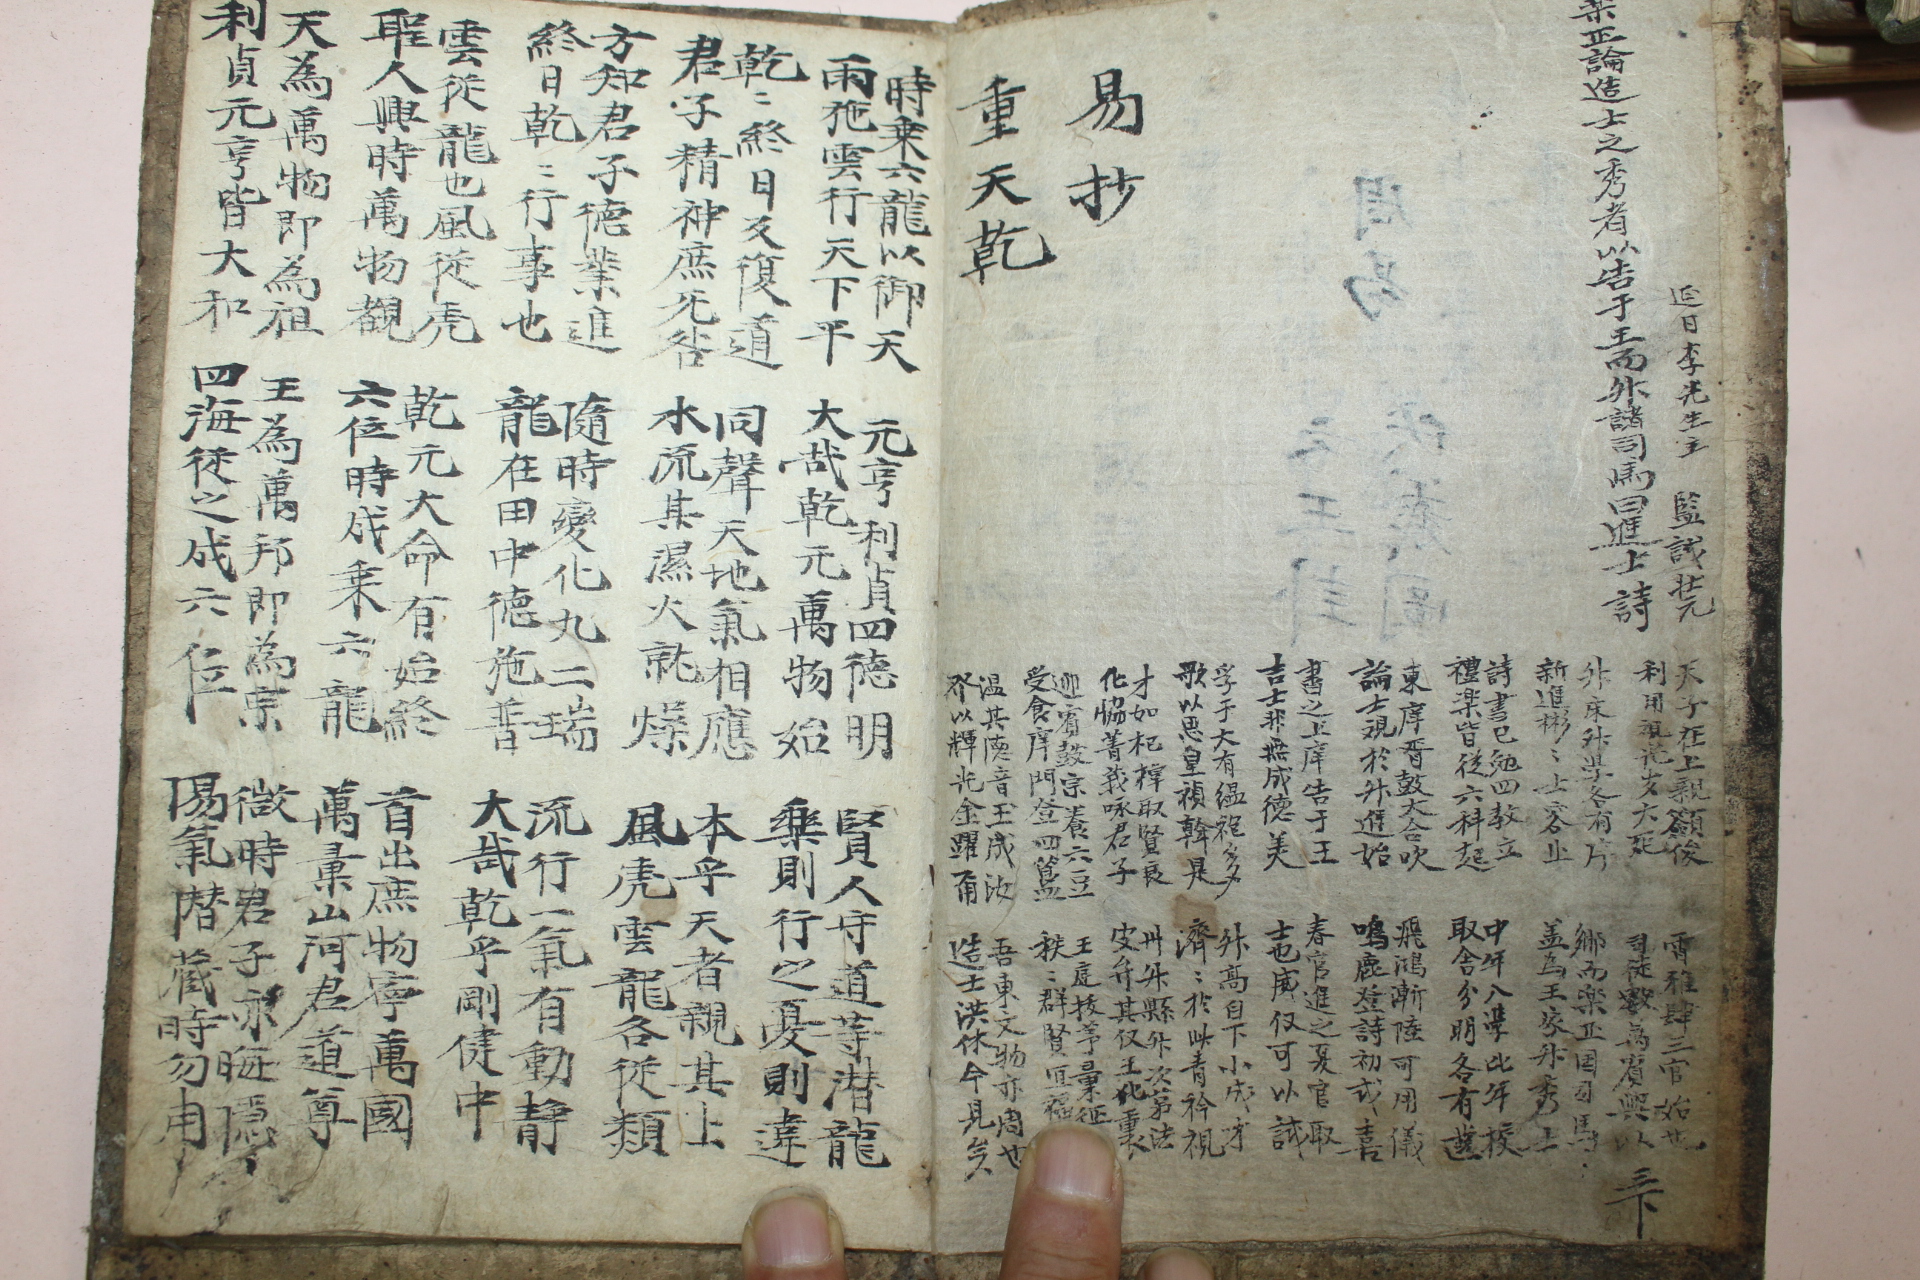 延日李先生主 監試壯元
樂正論造士之秀者以告于王而升諸司馬曰進士詩
易抄
重天乾
天子在上親籲俊
詩書已勉四教立
禮樂皆從六科起
東庠胥鼓大合吹
論士現於升進始
書之上庠告于王
吉士非無成德美
歌以思皇禎幹是
才如杞梓取賢良
化協菁莪咏君子
迎賓鼓宗養六豆
受食庠門登四簋
温其德音玉成汝
雷雅肆三官始也
司徒數爲賓興以
鄉而樂正国司馬
盖为王家升秀士
中年八學比年校
取舍分明各有
飛鴻漸陸可用儀
鳴鹿登詩初式喜
春官進之夏官取
士也庶仅可以試
升高自下小成才
濟〻於此青衿視
皮弁其仪王化
秩〻群賢
吾東文物亦周也
造士洪休今見矣
三下
時乘六龍以御天
雨施雲行天下平
乾〻終日反復道
君子精神庶无咎
方知君子德業進
終日乾〻行事也
雲從龍也風從虎
聖人興時萬物觀
天為萬物即為祖
利貞元亨皆大和
元亨利貞四德明
大哉乾元萬物始
同聲天地氣相應
水流其濕火就燥
隨時變化九二瑞
龍在田中德施普
乾元大命有始終
六位時成乘六龍
王為萬邦即為宗
四海從之成六位
賢人守道等潛龍
樂則行之憂則違
本乎天者親其上
風虎雲龍各從類
流行一氣有動靜
大哉乾乎剛健中
首出庶物寧萬國
萬彙山河君道尊
微時君子亦晦隱
陽氣潛藏時勿用